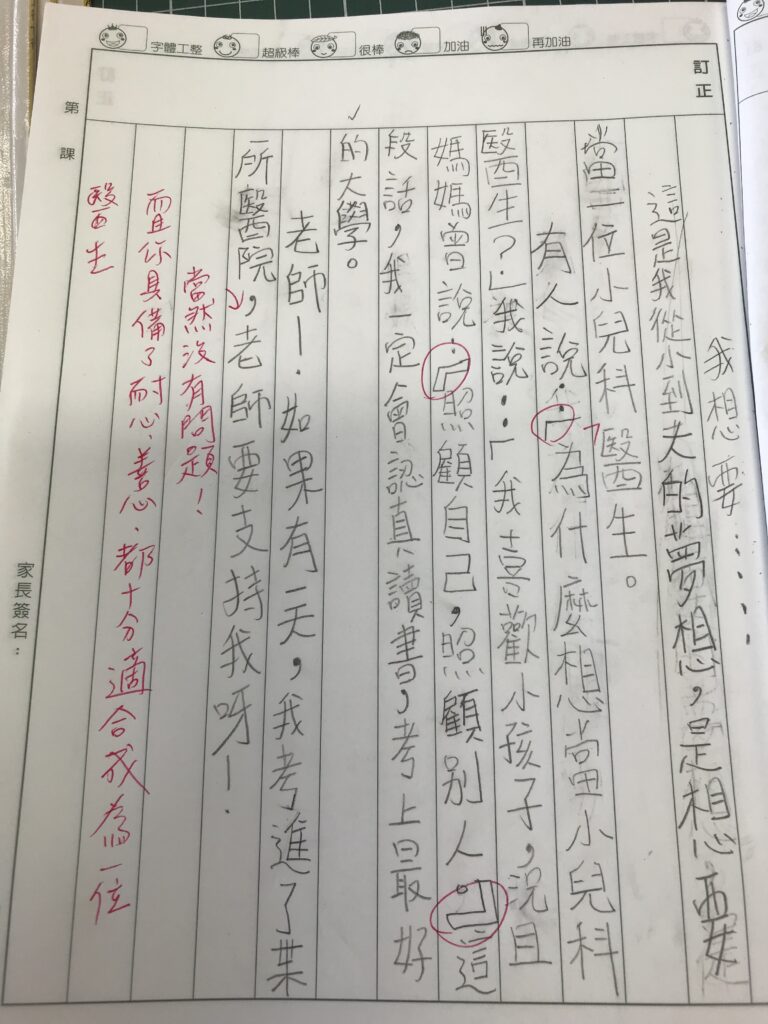 字體工整 超級棒 很棒 加油 再加油
訂正
我想要……
這是我從小到大的夢想，是想要
當一位小兒科醫生。
有人說：「為什麼想當小兒科
醫生？」我說：「我喜歡小孩子，況且
媽媽曾說：『照顧自己，照顧別人。』這
段話，我一定會認真讀書，考上最好
的大學。
老師！如果有一天，我考進了某
所醫院，老師要支持我呀！
當然沒有問題！
而且你具備了耐心、善心，都十分適合成為一位
醫生
第 課
家長簽名：